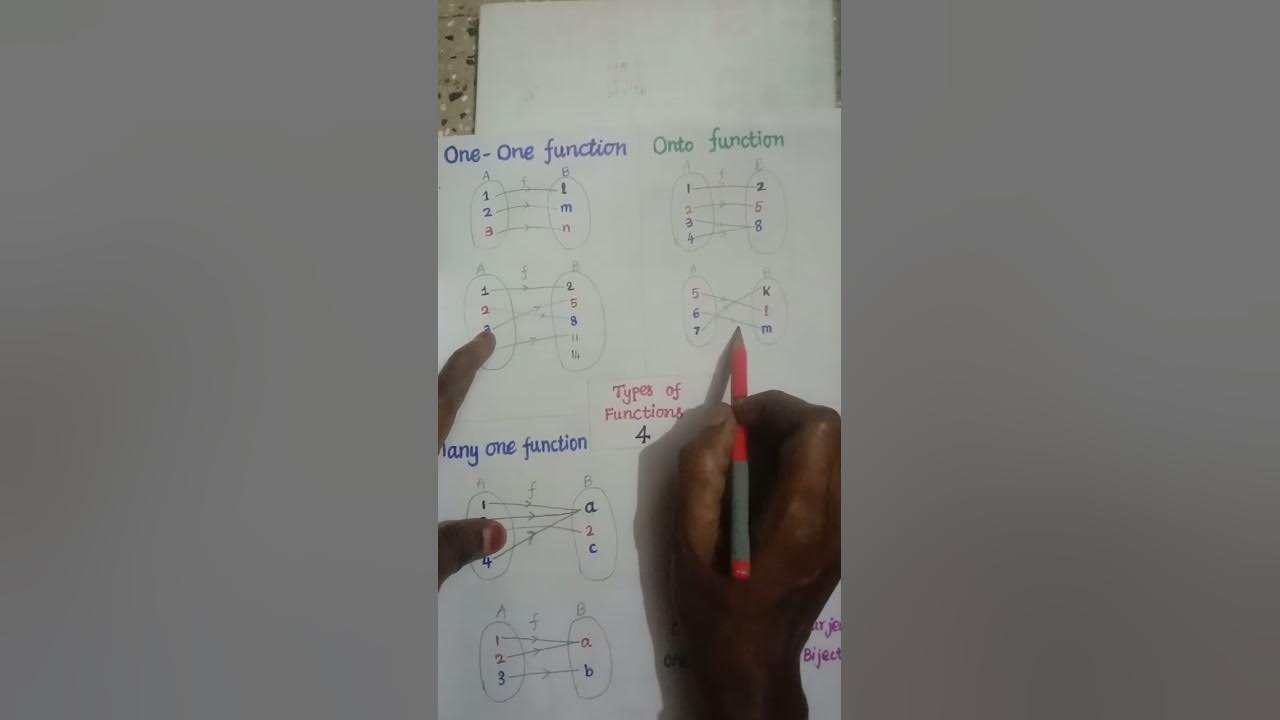 One-One function
A f B
1 l
2 m
3 n
A f B
1 2
2 5
3 8
11
14
Onto function
A f B
1 2
2 5
3 8
4
A B
5 k
6 l
7 m
Types of
Functions
4
any one function
A f B
1 a
2
4 c
A f B
1 a
2
3 b
Biject